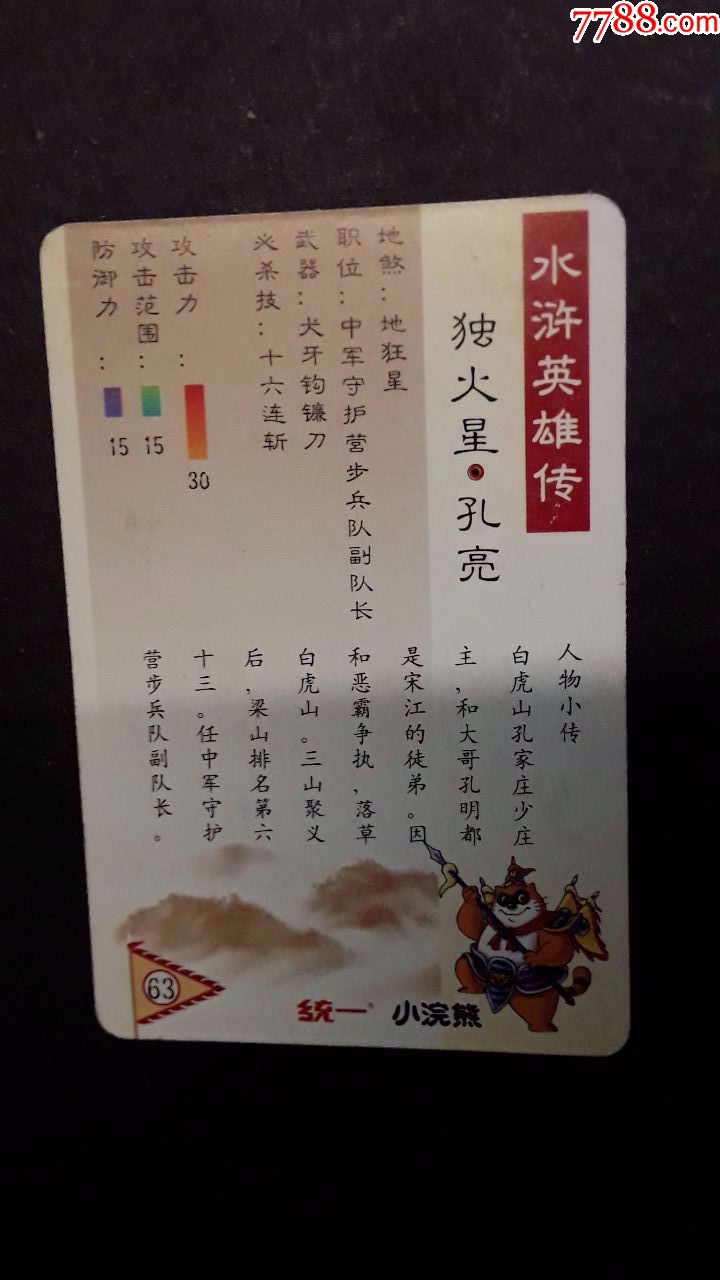 7788.com
水浒英雄传
独火星·孔亮
地煞：地狂星
职位：中军守护营步兵队副队长
武器：犬牙钩镰刀
必杀技：十六连斩
攻击力：30
攻击范围：15
防御力：15
人物小传
白虎山孔家庄少庄
主，和大哥孔明都
是宋江的徒弟。因
和恶霸争执，落草
白虎山。三山聚义
后，梁山排名第六
十三。任中军守护
营步兵队副队长。
63
统一® 小浣熊